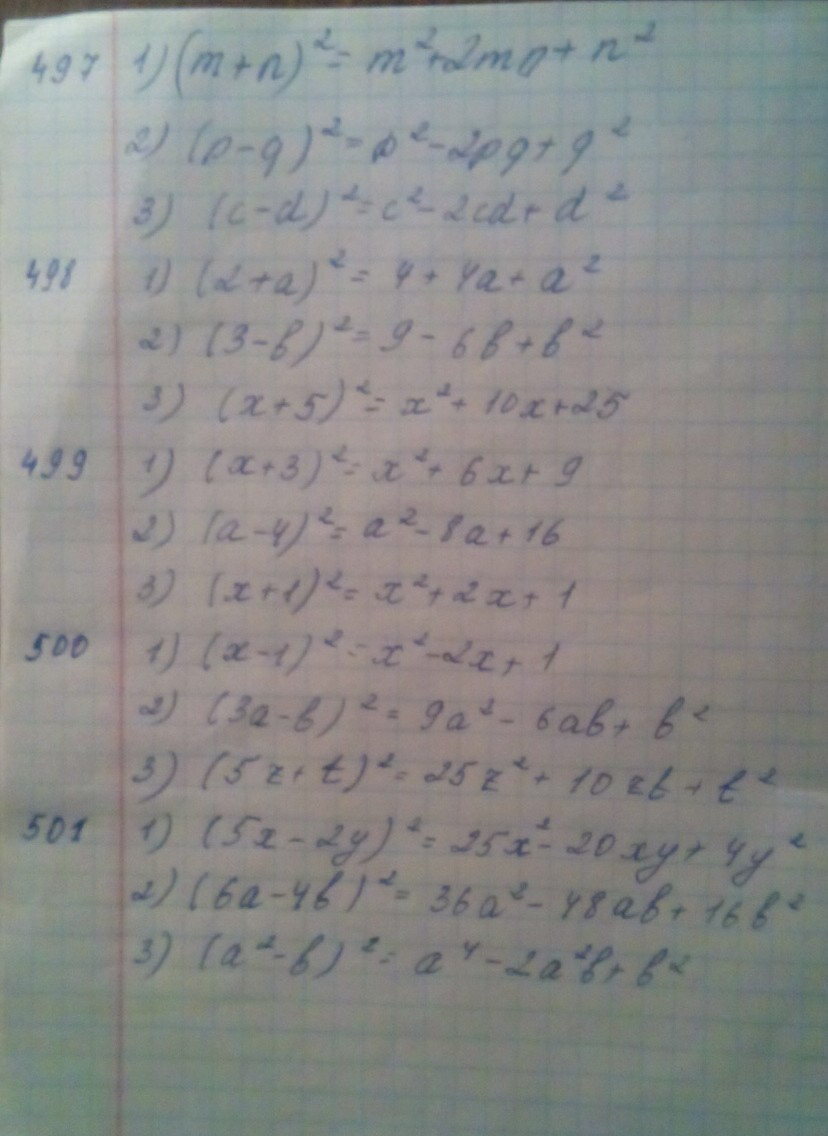 497 1) (m+n)²= m²+2mn+ n²
2) (p-q)²= p²-2pq+ q²
3) (c-d)²= c²- 2cd+ d²
498 1) (2+a)²= 4+ 4a+ a²
2) (3-b)²= 9- 6b+b²
3) (x+5)²= x²+ 10x+25
499 1) (x+3)²= x²+ 6x+ 9
2) (a-4)²= a²-8a+16
3) (x+1)²= x²+2x+1
500 1) (x-1)²= x²-2x+1
2) (3a-b)²= 9a²- 6ab+ b²
3) (5z+t)²= 25z²+ 10zt+ t²
501 1) (5x-2y)²= 25x²- 20xy+ 4y²
2) (6a-4b)²= 36a²- 48ab+ 16b²
3) (a²-b)²= a⁴-2a²b+b²